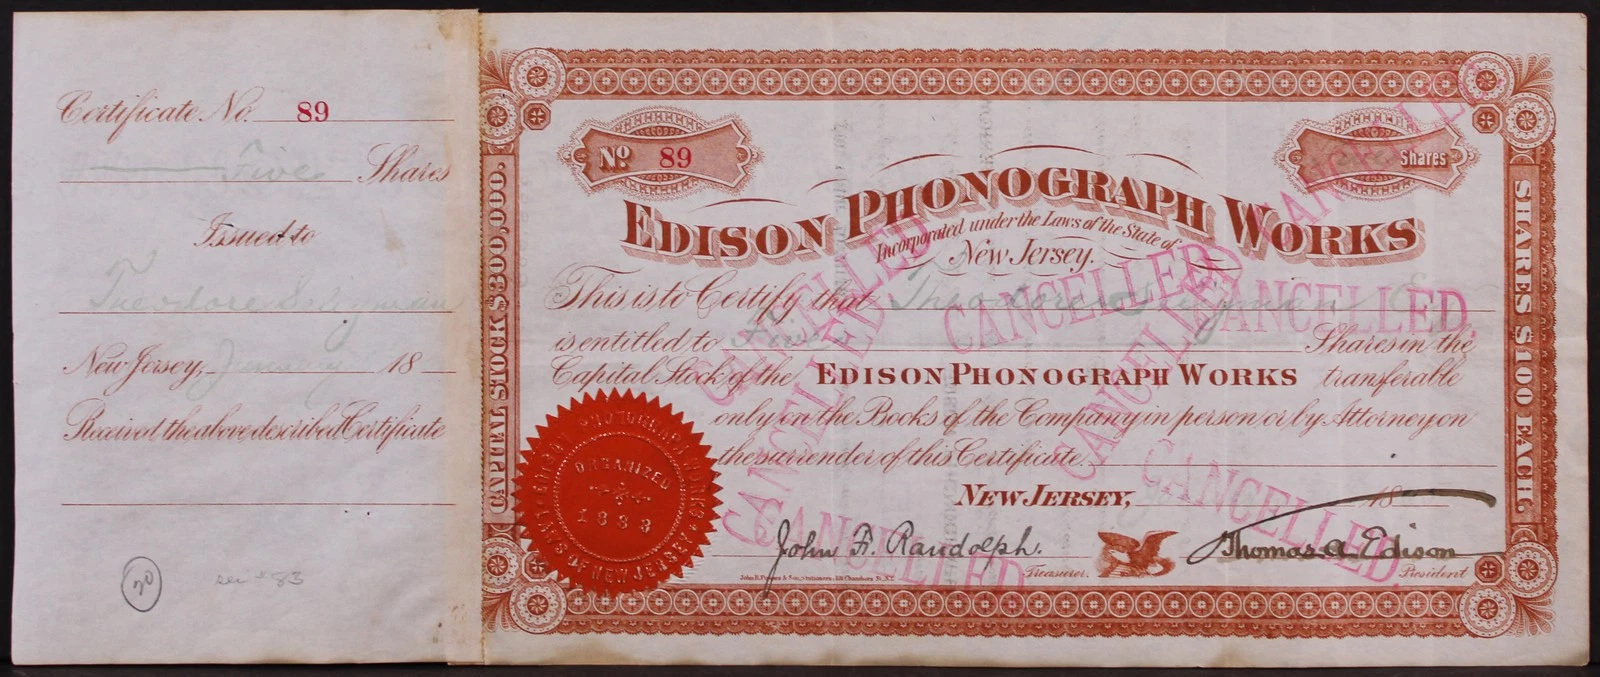 Certificate No. 89
Five Shares
Issued to
Theodore S.
New Jersey, January 18
Received the above described Certificate
20
see # 83
CAPITAL STOCK $300,000.
No 89
Shares
EDISON PHONOGRAPH WORKS
Incorporated under the Laws of the State of
New Jersey.
This is to Certify that Theodore
is entitled to Five Shares in the
Capital Stock of the EDISON PHONOGRAPH WORKS transferable
only on the Books of the Company in person or by Attorney on
the surrender of this Certificate.
NEW JERSEY, 18
John F. Randolph.
Treasurer.
Thomas A Edison
President
SHARES $100 EACH.
ORGANIZED
1888
CANCELLED
CANCELLED
CANCELLED
CANCELLED.
CANCELLED
CANCELLED
CANCELLED
CANCELLED